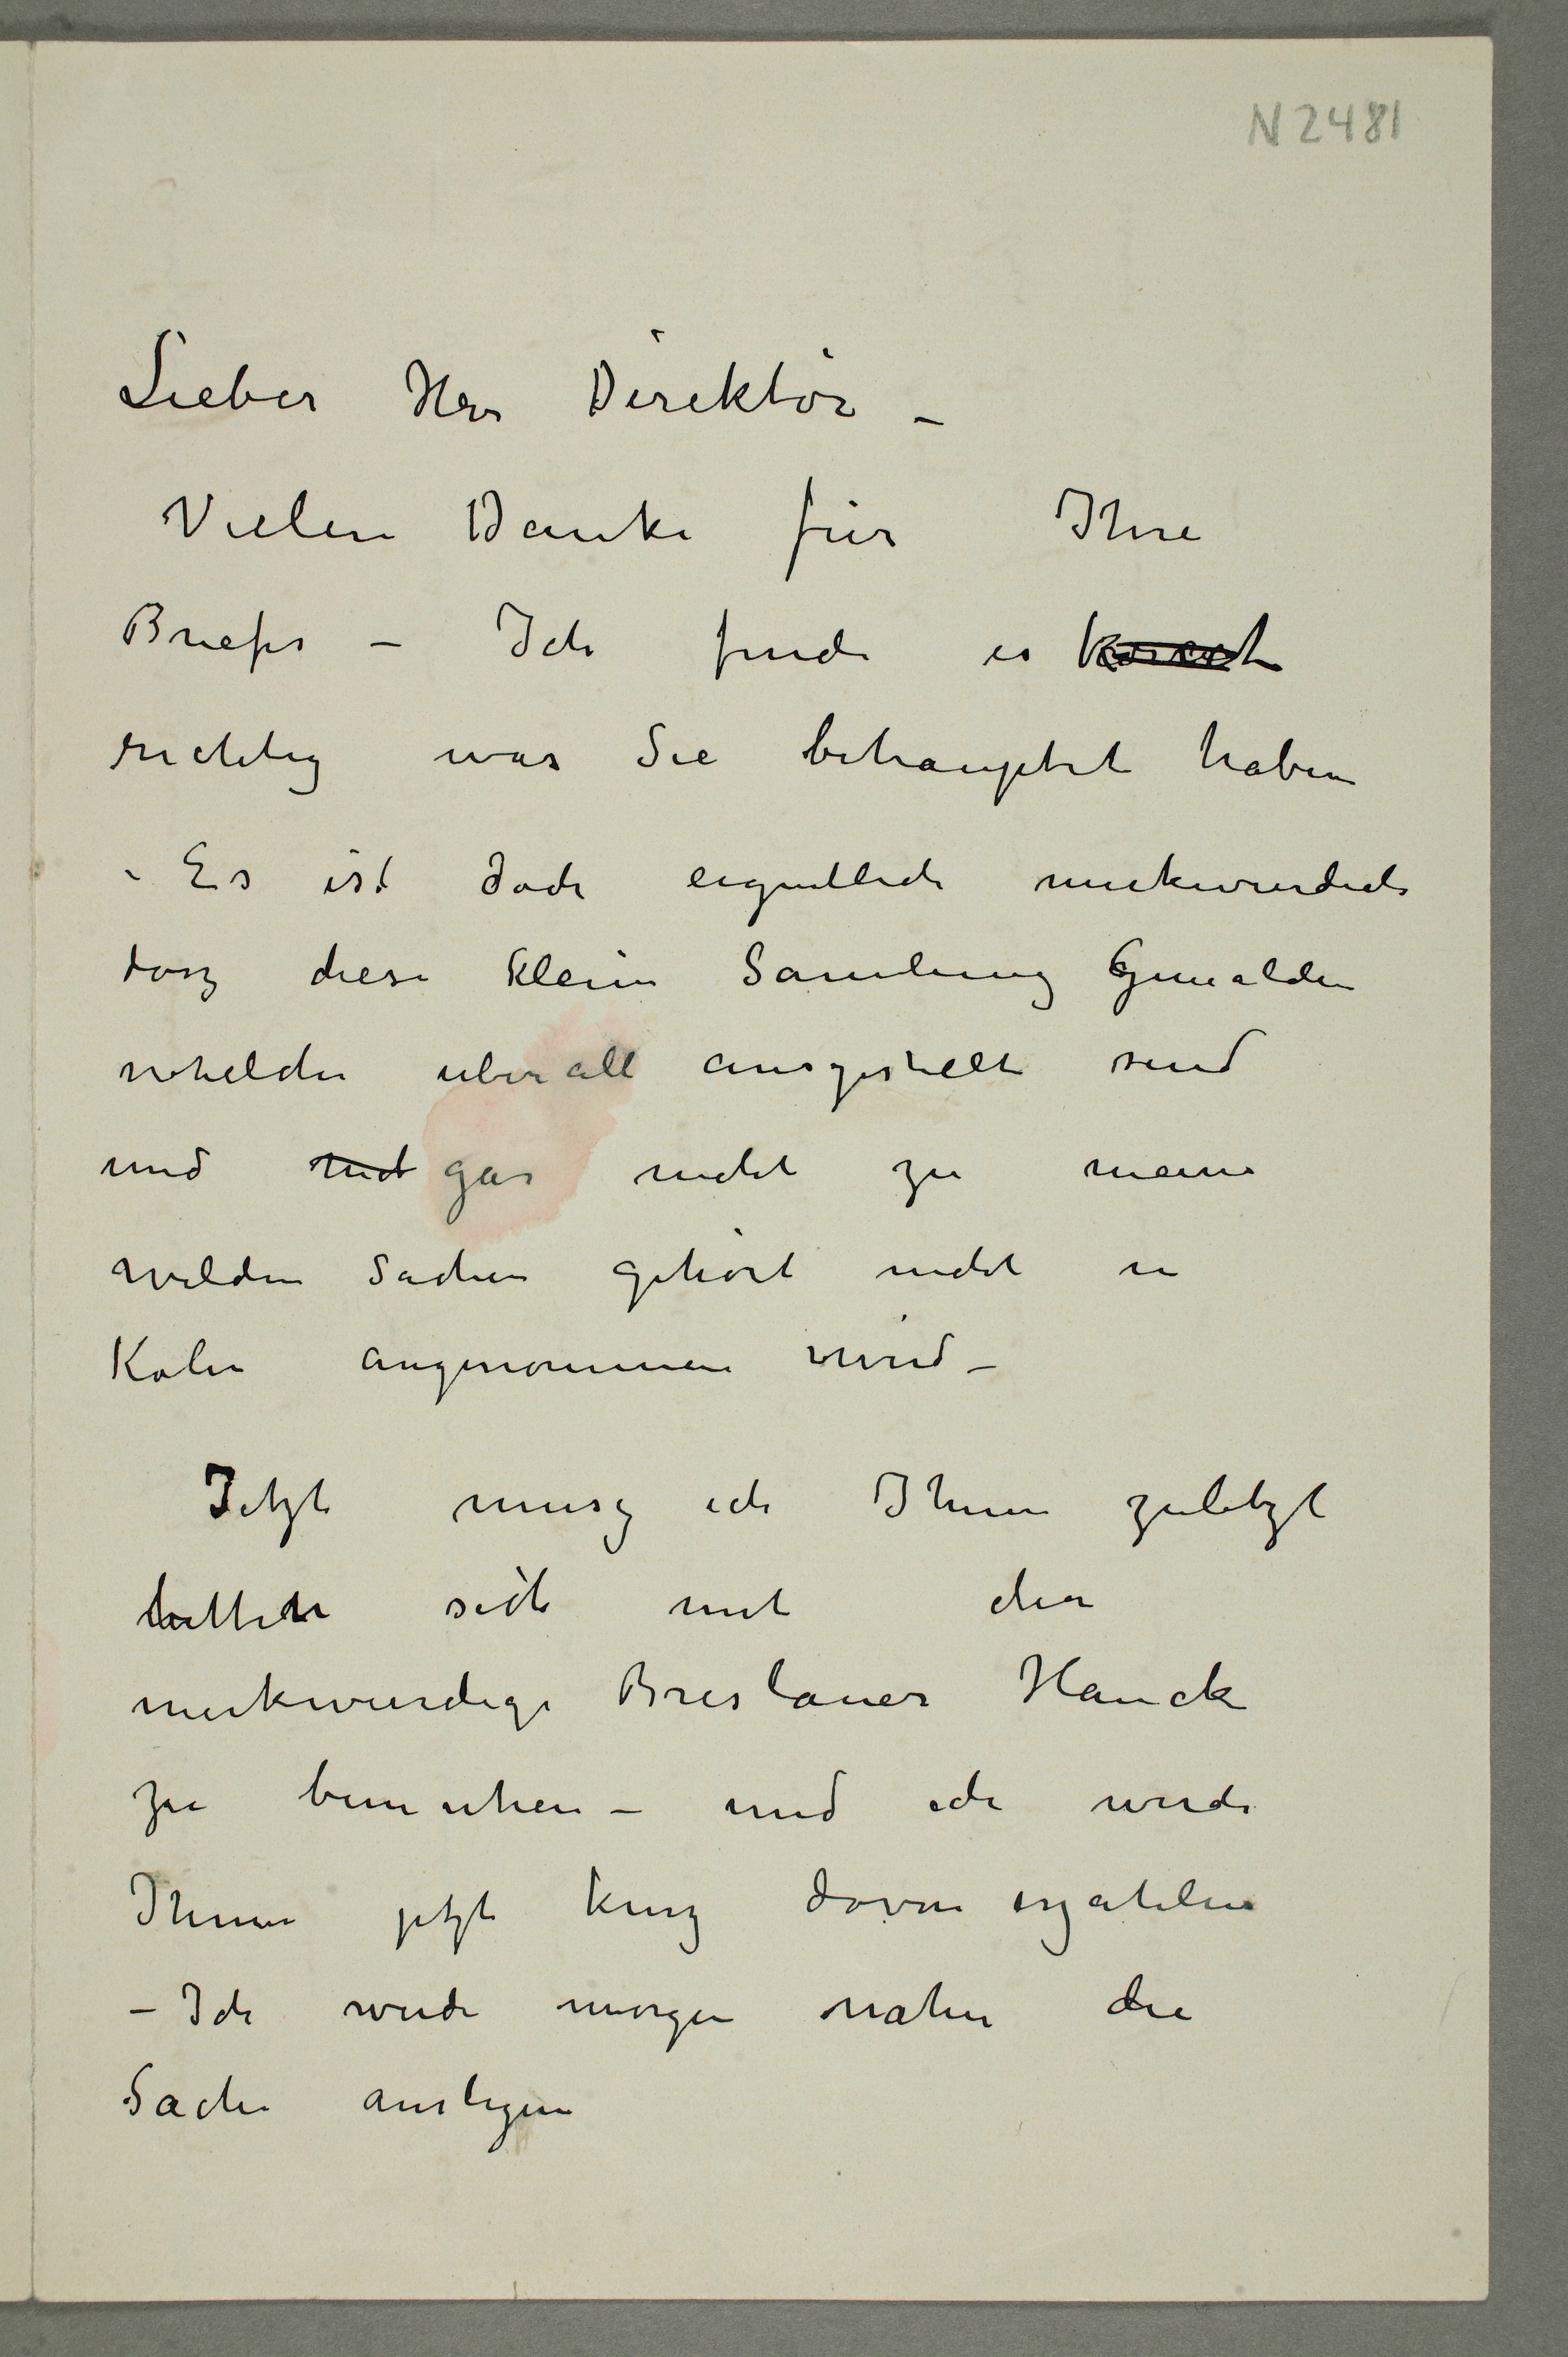 N 2481
Lieber Herr Direktör –
Vielen Danke für Ihre
Briefe – Ich finde es korect
richtig was Sie behauptet haben
– Es ist doch eigentlich merkwurdich
dasz diese kleine Samlung Gemalden
whelche uberall ausgestellt sind
und nicht gar nicht zu meine
wilden Sachen gehört nicht in
Koln angenommen wird –
Jetzt musz ich Ihnen zuletzt
bitten sich mit der
merkwurdige Breslauer Hanck
zu bemuhen – und ich werde
Ihnen jetzt kurz davon erzahlen
– Ich werde morgen naher die
Sache auslegen